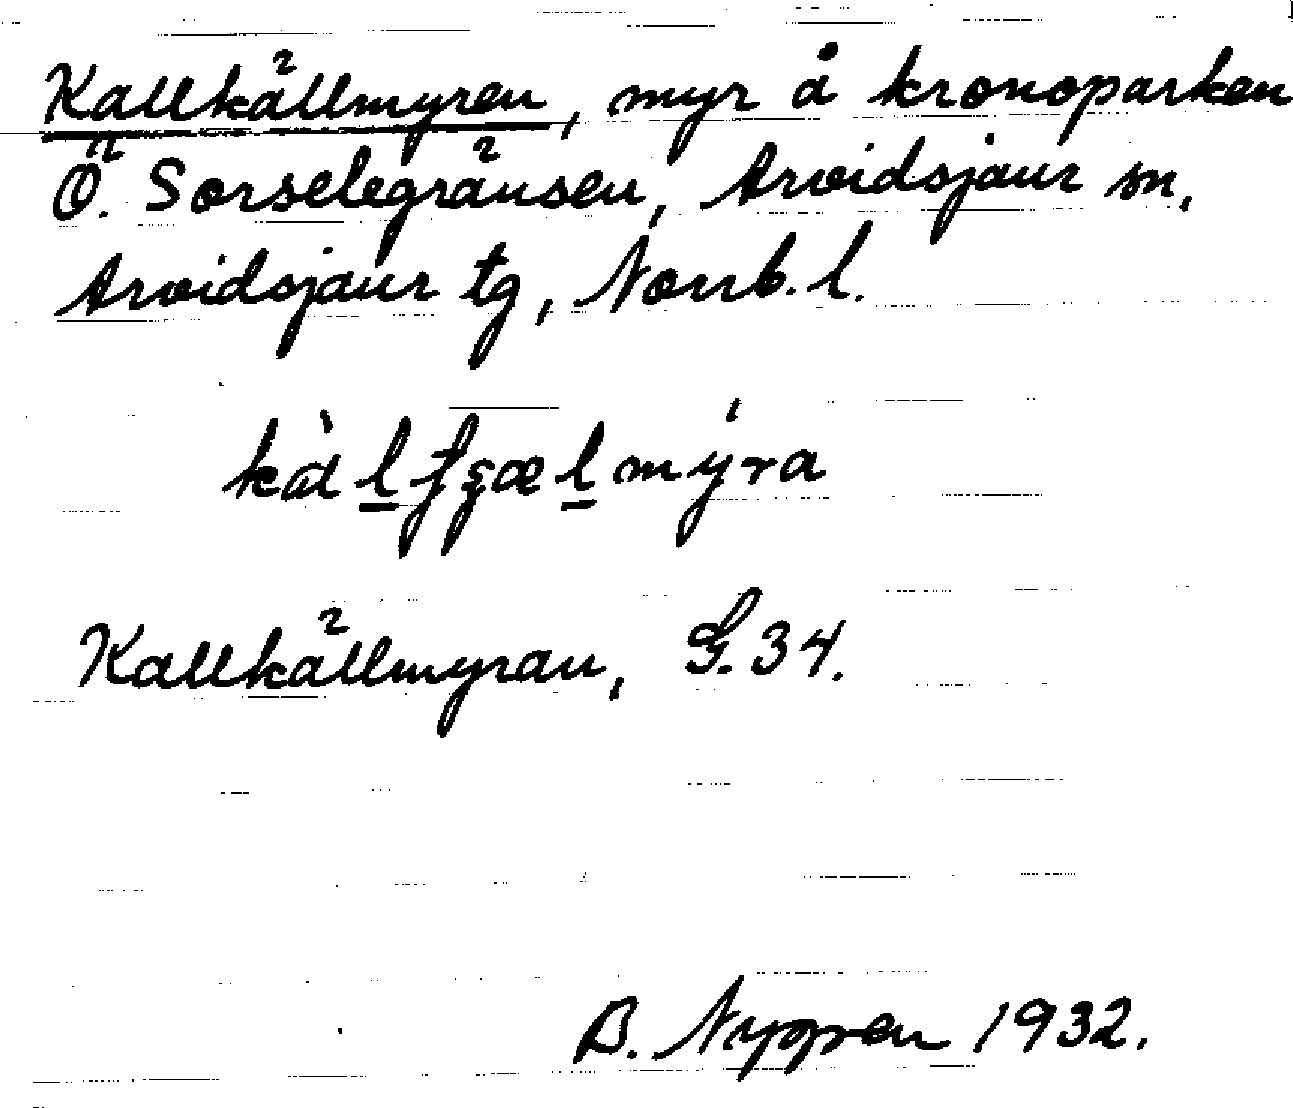 Kallkällmyren, myr å kronoparken
Ö. Sorselegränsen, Arvidsjaur sn,
Arvidsjaur tg, Norrb. l.
Kallkällmyran, G. 34.
B. Nygren 1932.